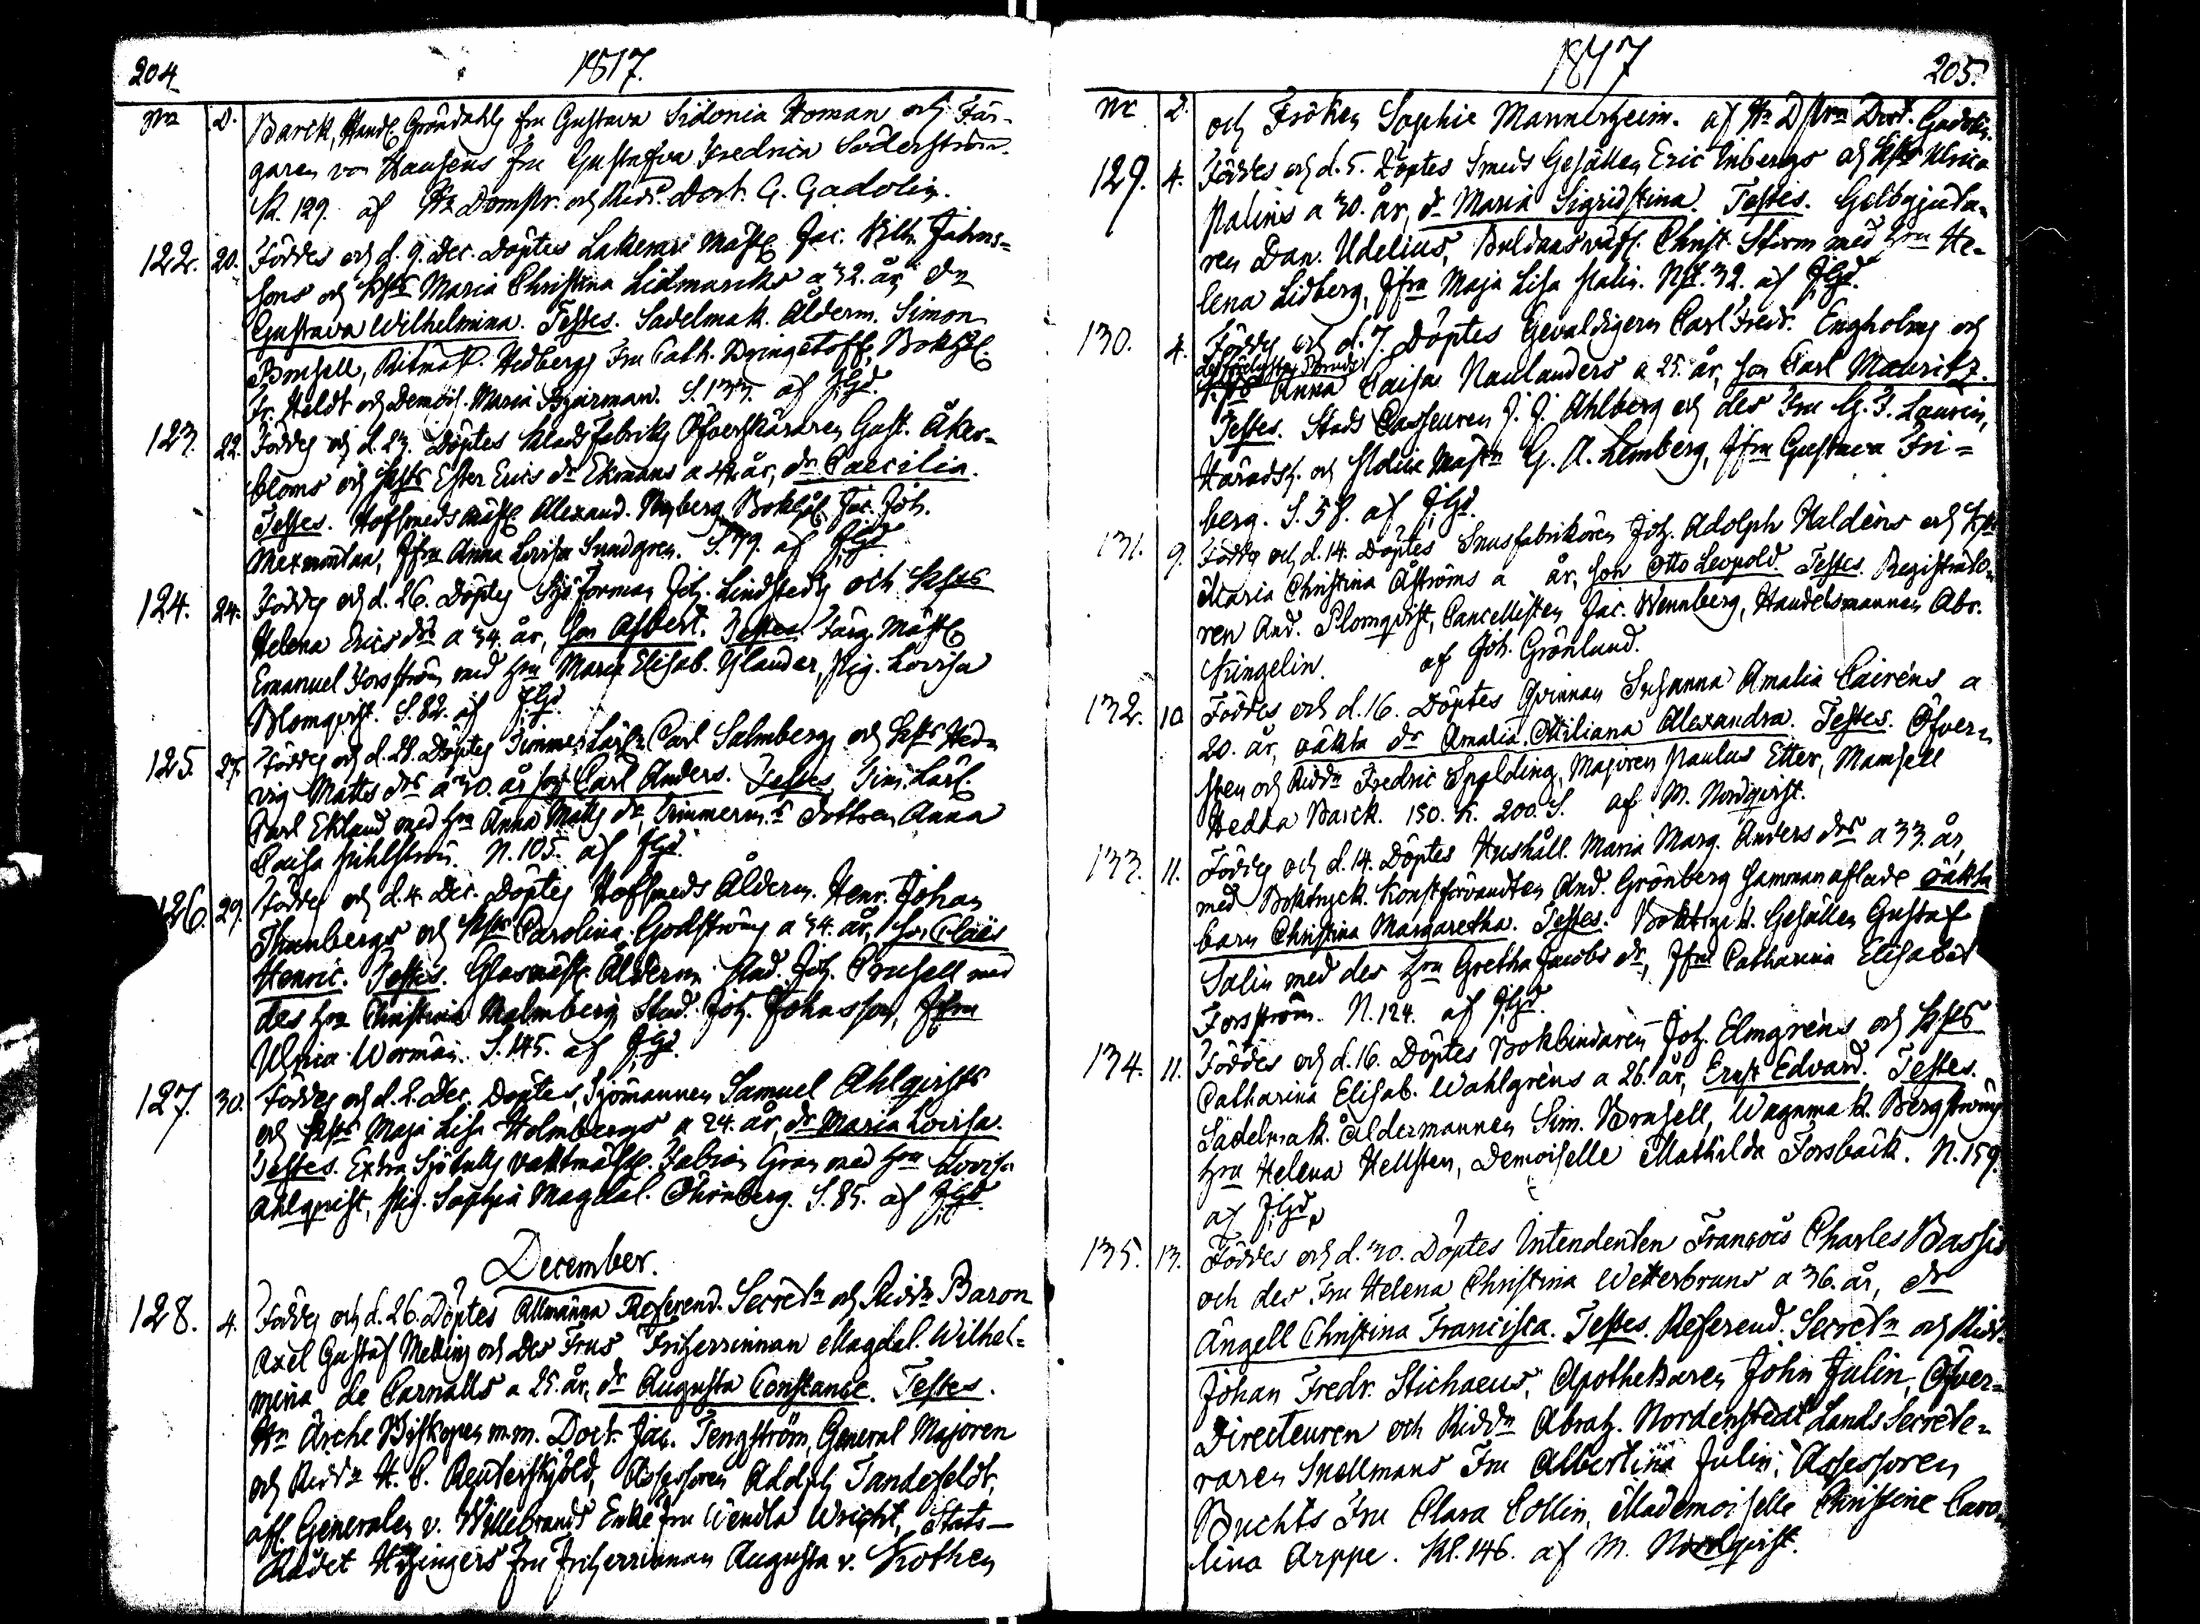 204
1817.
Nro D.
Barck, Handl. Gröndahls fru Gustava Sidonia Homan och Fär-
garen von Hausens fru Gustafva Fredrica Söderström.
K. 129. af Hr Dompr. och Ridd. Doct. G. Gadolin.
122. 20. Föddes och d. 9. Dec. Döptes Lakerare Mäst. Jac. Wilh. Johns-
sons och Hstrs Maria Christina Lidmarcks a 32. år, dr
Gustava Wilhelmina. Testes. Sadelmak. Ålderm. Simon
Brusell, Ritmäst. Hedbergs Fru Cath. Boktr.
Fr. Heldt och Demois. Maria Bjurman. S. 133. af JGd.
123. 22. Föddes och d. 23. Döptes Klädsfabriks Öfverskäraren Gust. Åker-
bloms och Hstrs Ester Erics dr Ekmans a 42 år, dr Caecilia.
Testes. Hofsmeds Mäst. Alexand. Nyberg, Bokhål. Jac. Joh.
Mexmontan, Jfru Anna Lovisa Sundgren. S. 79. af JGd.
124. 24. Föddes och d. 26. Döptes Sjöforman Joh. Lindstedts och Hstrs
Helena Erics drs a 34. år, son Albert. Testes. Färg. Mäst.
Emanuel Forsström med hru Maria Elisab. Ylander, Pig. Lovisa
Blomqvist. S. 82. af JGd.
125. 27. Föddes och d. 28. Döptes Timmer Karln Carl Salmbergs och Hstrs Hed-
vig Matts drs a 30. år son Carl Anders. Testes. Tim. Karl.
Carl Eklund med hru Anna Matts dr, Timmerm.s Dottren Anna
Caisa Pihlström. N. 105. af JGd.
126. 29. Föddes och d. 4. Dec. Döptes Hofsmeds Ålderm. Henr. Johan
Thunbergs och Hstrs Carolina Godströms a 34. år, son Claës
Henric. Testes. Glasmäst. Ålderm. And. Joh. Brusell med
des hru Christina Malmberg, Stud. Joh. Johnsson, Jfru
Ulrica Worman. S. 145. af JGd.
127. 30. Föddes och d. 2. Dec. Döptes, Sjömannen Samuel Ahlqvists
och Hstrs Maja Lisa Holmbergs a 24. år, dr Maria Lovisa.
Testes. Extra Sjötulls Vaktmäst. Fabian Gran med hru Lovisa
Ahlqvist, Pig. Sophia Magdal. Öhrnberg. S. 85. af JGd.
December.
128. 4. Föddes och d. 26. Döptes Allmänna Referend. Secretn och Riddn Baron
Axel Gustaf Mellins och des Frus Friherrinnan Magdal. Wilhel-
mina de Carnalls a 25. år, dr Augusta Constance. Testes.
Hr Ärche Biskopen m.m. Doct. Jac. Tengström, General Majoren
och Riddn H. C. Reuterskjöld, Assessoren Adolph Tandefeldt,
afl. Generalen v. Willebrands Enke fru Wendla Wright, Stats-
Rådet Hisingers fru Friherrinnan Augusta v. Kothen
1817
205.
Nr D.
och Fröken Sophie Mannerheim. af Hr D. prn Doct. Gadolin.
129. 4. Föddes och d. 5. Döptes Smeds Gesällen Eric Enbergs och Hstrs Ulrica
Palins a 30. år, dr Maria Sigridstina. Testes. Gelbgjuta-
ren Dan. Udelius, Christ. Storm med hru He-
lena Lidberg, Jfru Maja Lisa Palin. N. 32. af JGd.
130. 4. Föddes och d. 7. Döptes Gevaldigern Carl Fredr. Engholms och
Anna Caisa Naulanders a 25. år, son Carl Mauritz.
Testes. Stads Casseuren J. J. Ahlberg och des Fru G. F. Laurin,
Häradsh. och Police Mästn G. A. Lemberg, Jfru Gustava Fri-
berg. S. 58. af JGd.
131. 9. Föddes och d. 14. Döptes Snusfabrikören Joh. Adolph Haldens och Hstrs
Maria Christina Åströms a år, son Otto Leopold. Testes. Registrato-
ren And. Blomqvist, Cancellisten Jac. Wennberg, Handelsmannen Abr.
Kingelin. af Joh. Grönlund.
132. 10. Föddes och d. 16. Döptes Qvinnan Susanna Amalia Cairéns a
20. år, oäkta dr Amalia Ottiliana Alexandra. Testes. Öfver-
sten och Riddn Fredric Spalding, Majoren Paulus Etter, Mamsell
Hedda Barck. 150. K. 200. S. af M. Nordqvist.
133. 11. Föddes och d. 14. Döptes Hushåll. Maria Marg. Anders drs a 33. år,
med Boktryck. Konstförvandten And. Grönberg sammanaflade oäkta
barn Christina Margaretha. Testes. Boktryck. Gesällen Gustaf
Salin med des hru Gretha Jacobs dr, Jfru Catharina Elisabet
Forsström. N. 124. af JGd.
134. 11. Föddes och d. 16. Döptes Bokbindaren Joh. Elmgréns och Hstrs
Catharina Elisab. Wahlgréns a 26. år, Ernst Edvard. Testes.
Sadelmak. Åldermannen Sim. Brusell, Wagnmak. Bergströms
hru Helena Hellsten, Demoiselle Mathilda Forsbäck. N. 159.
af JGd.
135. 13. Föddes och d. 30. Döptes Intendenten François Charles Bassis
och des Fru Helena Christina Wetterbruns a 36. år, dr
Ängell Christina Francisca. Testes. Referend. Secretn och Ridd.
Johan Fredr. Stichaeus, Apothekaren John Julin, Öfver-
Directeuren och Riddn Abrah. Nordenstedt Lands Secrete-
raren Snellmans Fru Albertina Julin, Assessoren
Buchts Fru Clara Collin, Mademoiselle Christine Caro-
lina Arppe. Kl. 146. af M. Nordqvist.